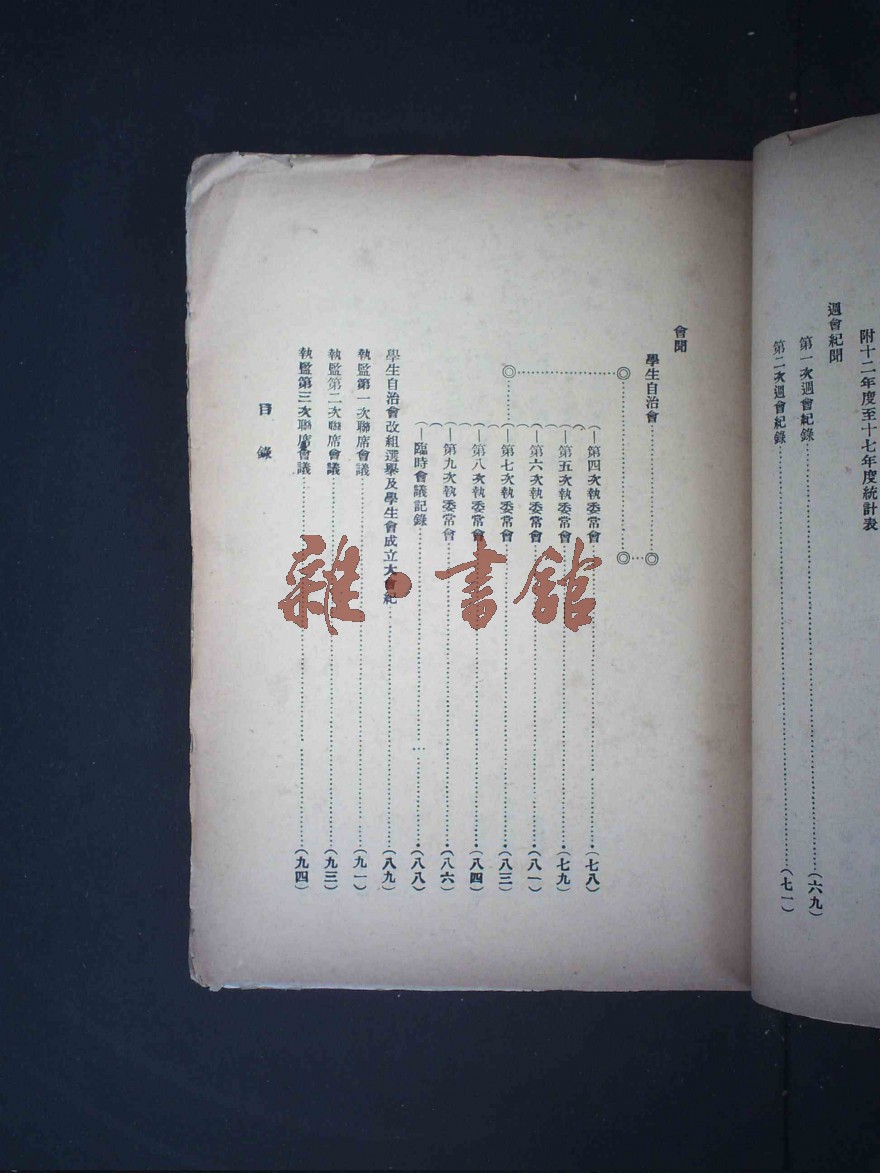 附十二年度至十七年度統計表
週會紀聞
第一次週會紀錄……………(六九)
第二次週會紀錄……………(七一)
會聞
學生自治會
第四次執委常會……………(七八)
第五次執委常會……………(七九)
第六次執委常會……………(八一)
第七次執委常會……………(八三)
第八次執委常會……………(八四)
第九次執委常會……………(八六)
臨時會議記錄……………(八八)
學生自治會改組選舉及學生會成立大會紀……………(八九)
執監第一次聯席會議……………(九一)
執監第二次聯席會議……………(九三)
執監第三次聯席會議……………(九四)
目錄
雜·書館